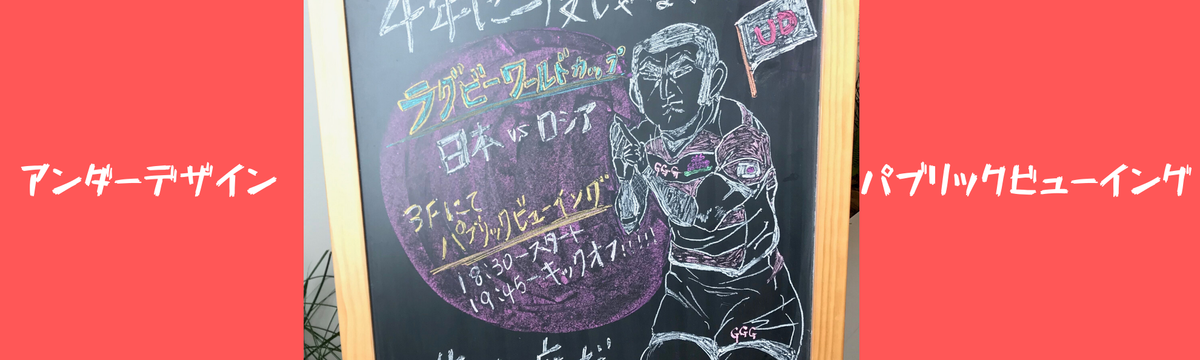 アンダーデザイン
4年に一度じゃない
ラグビーワールドカップ
日本 vs ロシア
3Fにて
パブリックビューイング
18:30〜スタート
19:45〜キックオフ!!!!!
UD
GGG
GGG
パブリックビューイング